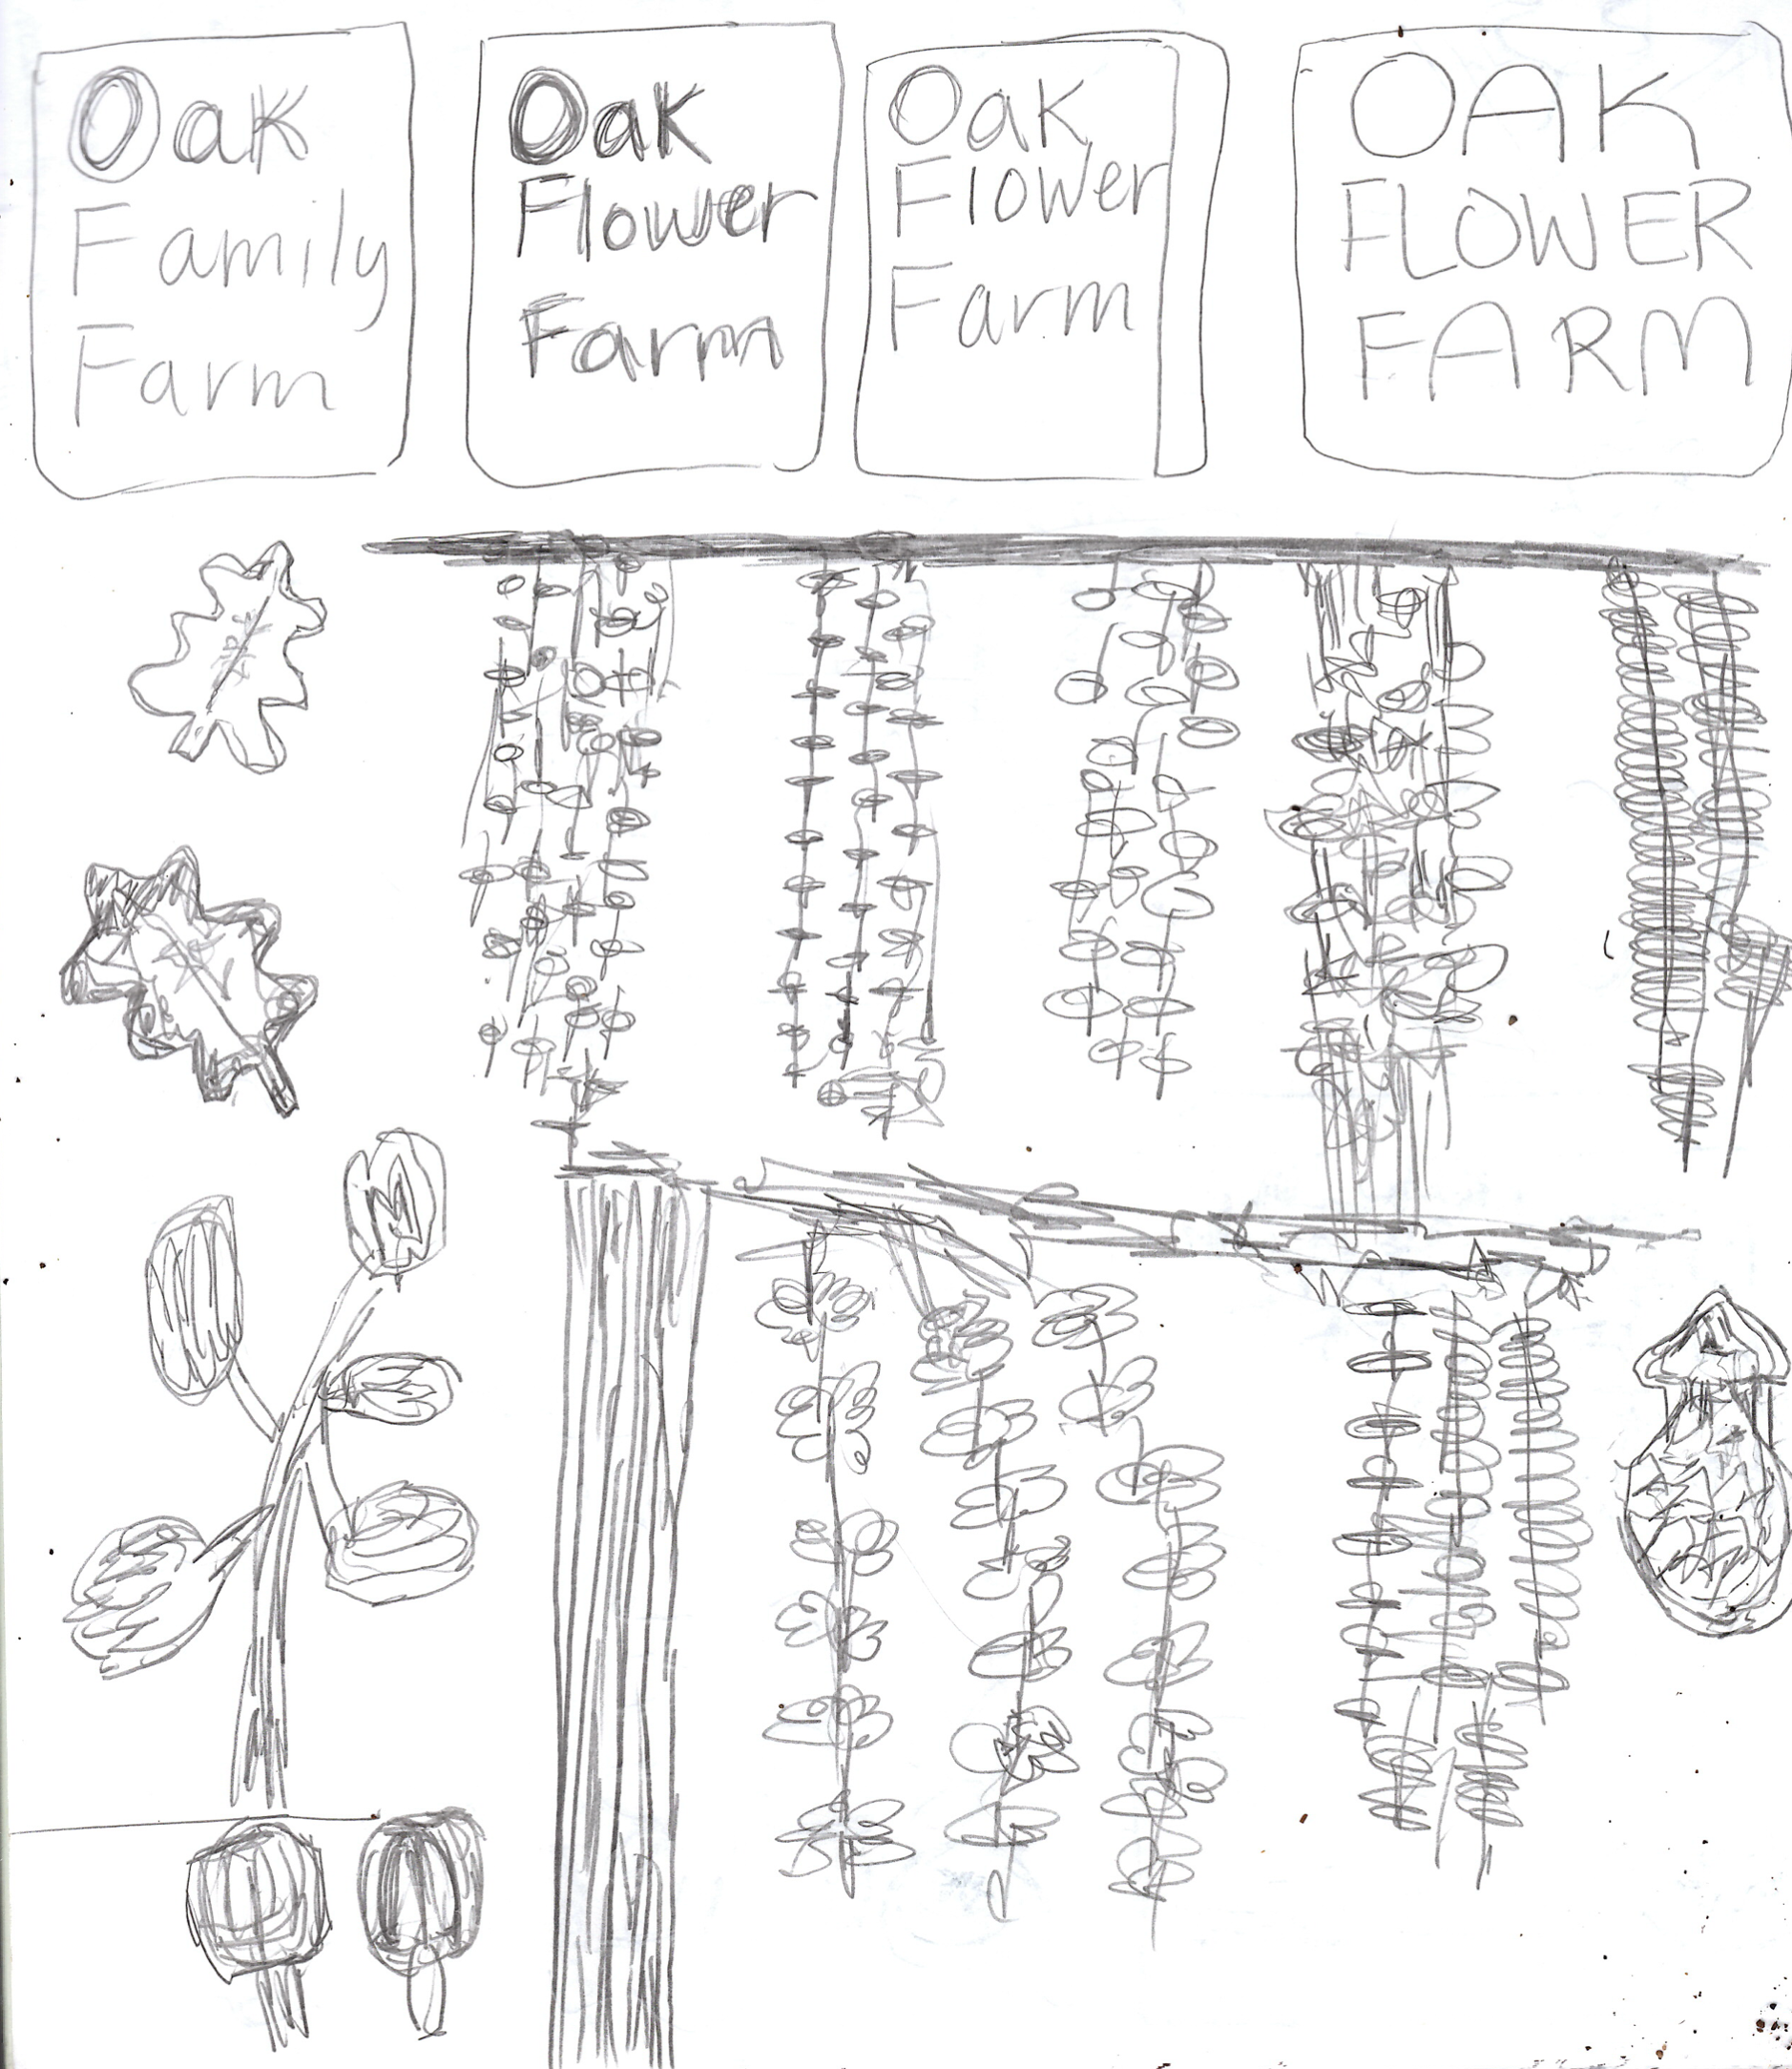 Oak
Family
Farm
Oak
Flower
Farm
Oak
Flower
Farm
OAK
FLOWER
FARM